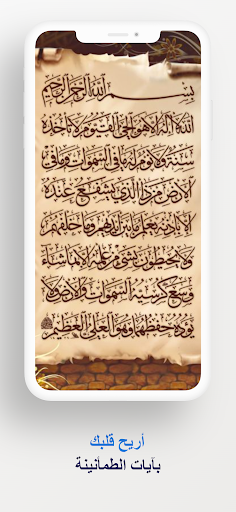 بِسْمِ اللَّهِ الرَّحْمَنِ الرَّحِيمِ
اللَّهُ لَا إِلَهَ إِلَّا هُوَ الْحَيُّ الْقَيُّومُ لَا تَأْخُذُهُ
سِنَةٌ وَلَا نَوْمٌ لَهُ مَا فِي السَّمَوَاتِ وَمَا فِي
الْأَرْضِ مَنْ ذَا الَّذِي يَشْفَعُ عِنْدَهُ
إِلَّا بِإِذْنِهِ يَعْلَمُ مَا بَيْنَ أَيْدِيهِمْ وَمَا خَلْفَهُمْ
وَلَا يُحِيطُونَ بِشَيْءٍ مِنْ عِلْمِهِ إِلَّا بِمَا شَاءَ
وَسِعَ كُرْسِيُّهُ السَّمَوَاتِ وَالْأَرْضَ وَلَا
يَئُودُهُ حِفْظُهُمَا وَهُوَ الْعَلِيُّ الْعَظِيمُ
أريح قلبك
بآيات الطمأنينة